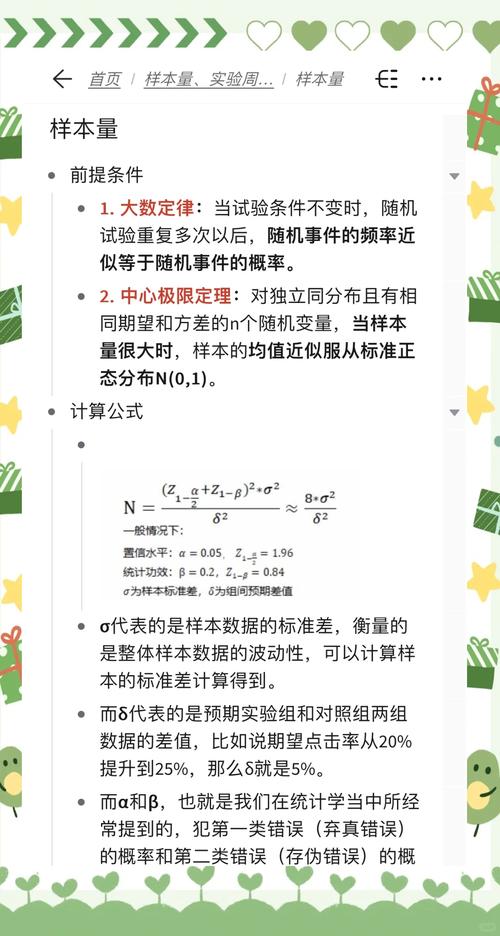 首页 / 样本量、实验周... / 样本量
样本量
前提条件
1. 大数定律：当试验条件不变时，随机
试验重复多次以后，随机事件的频率近
似等于随机事件的概率。
2. 中心极限定理：对独立同分布且有相
同期望和方差的n个随机变量，当样本
量很大时，样本的均值近似服从标准正
态分布N(0,1)。
计算公式
N = (Z_{1-α/2}+Z_{1-β})²*σ² / δ² ≈ 8*σ² / δ²
一般情况下：
置信水平：α = 0.05, Z_{1-α/2} = 1.96
统计功效：β = 0.2, Z_{1-β} = 0.84
σ为样本标准差，δ为组间预期差值
σ代表的是样本数据的标准差，衡量的
是整体样本数据的波动性，可以计算样
本的标准差计算得到。
而δ代表的是预期实验组和对照组两组
数据的差值，比如说期望点击率从20%
提升到25%，那么δ就是5%。
而α和β，也就是我们在统计学当中所经
常提到的，犯第一类错误（弃真错误）
的概率和第二类错误（存伪错误）的概